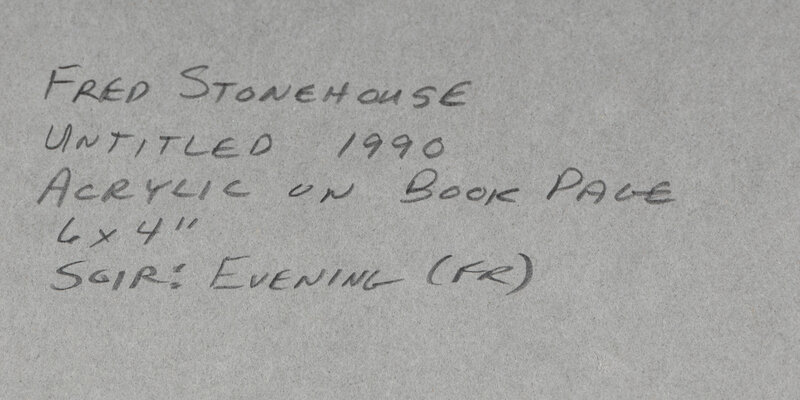 FRED STONEHOUSE
UNTITLED 1990
ACRYLIC ON BOOK PAGE
6 x 4"
SOIR: EVENING (FR)